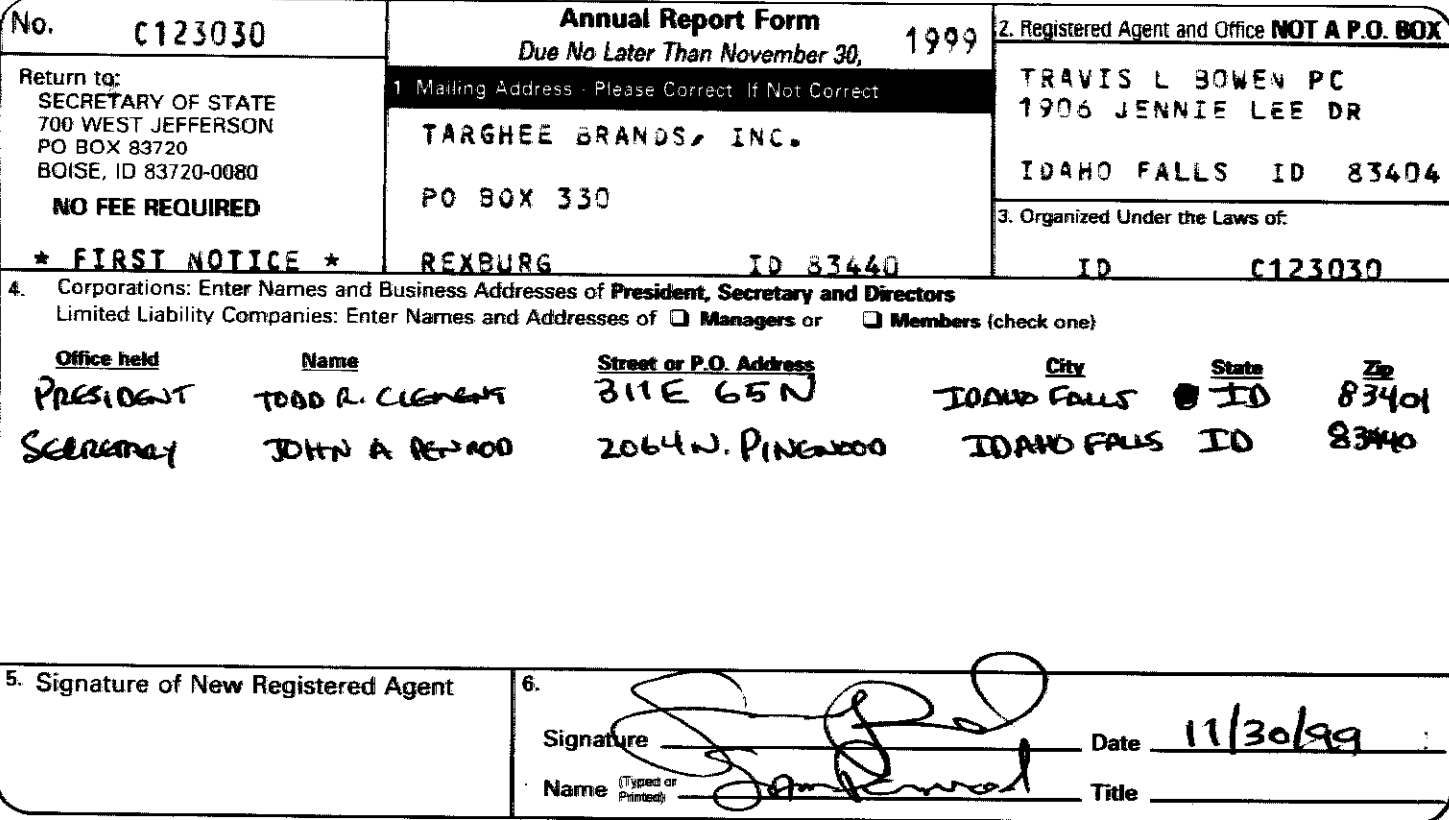 No. C123030
Return to:
SECRETARY OF STATE
700 WEST JEFFERSON
PO BOX 83720
BOISE, ID 83720-0080
NO FEE REQUIRED
* FIRST NOTICE *
Annual Report Form
Due No Later Than November 30, 1999
1 Mailing Address - Please Correct If Not Correct
TARGHEE BRANDS, INC.
PO BOX 330
REXBURG ID 83440
2. Registered Agent and Office NOT A P.O. BOX
TRAVIS L BOWEN PC
1906 JENNIE LEE DR
IDAHO FALLS ID 83404
3. Organized Under the Laws of:
ID C123030
4. Corporations: Enter Names and Business Addresses of President, Secretary and Directors
Limited Liability Companies: Enter Names and Addresses of ☐ Managers or ☐ Members (check one)
Office held Name Street or P.O. Address City State Zip
PRESIDENT TODD R. CLEMENT 311 E 65 N IDAHO FALLS ID 83401
SECRETARY JOHN A PENROD 2064 N. PINEWOOD IDAHO FALLS ID 83440
5. Signature of New Registered Agent
6.
Signature Date 11/30/99
Name (Typed or Printed) Penrod Title